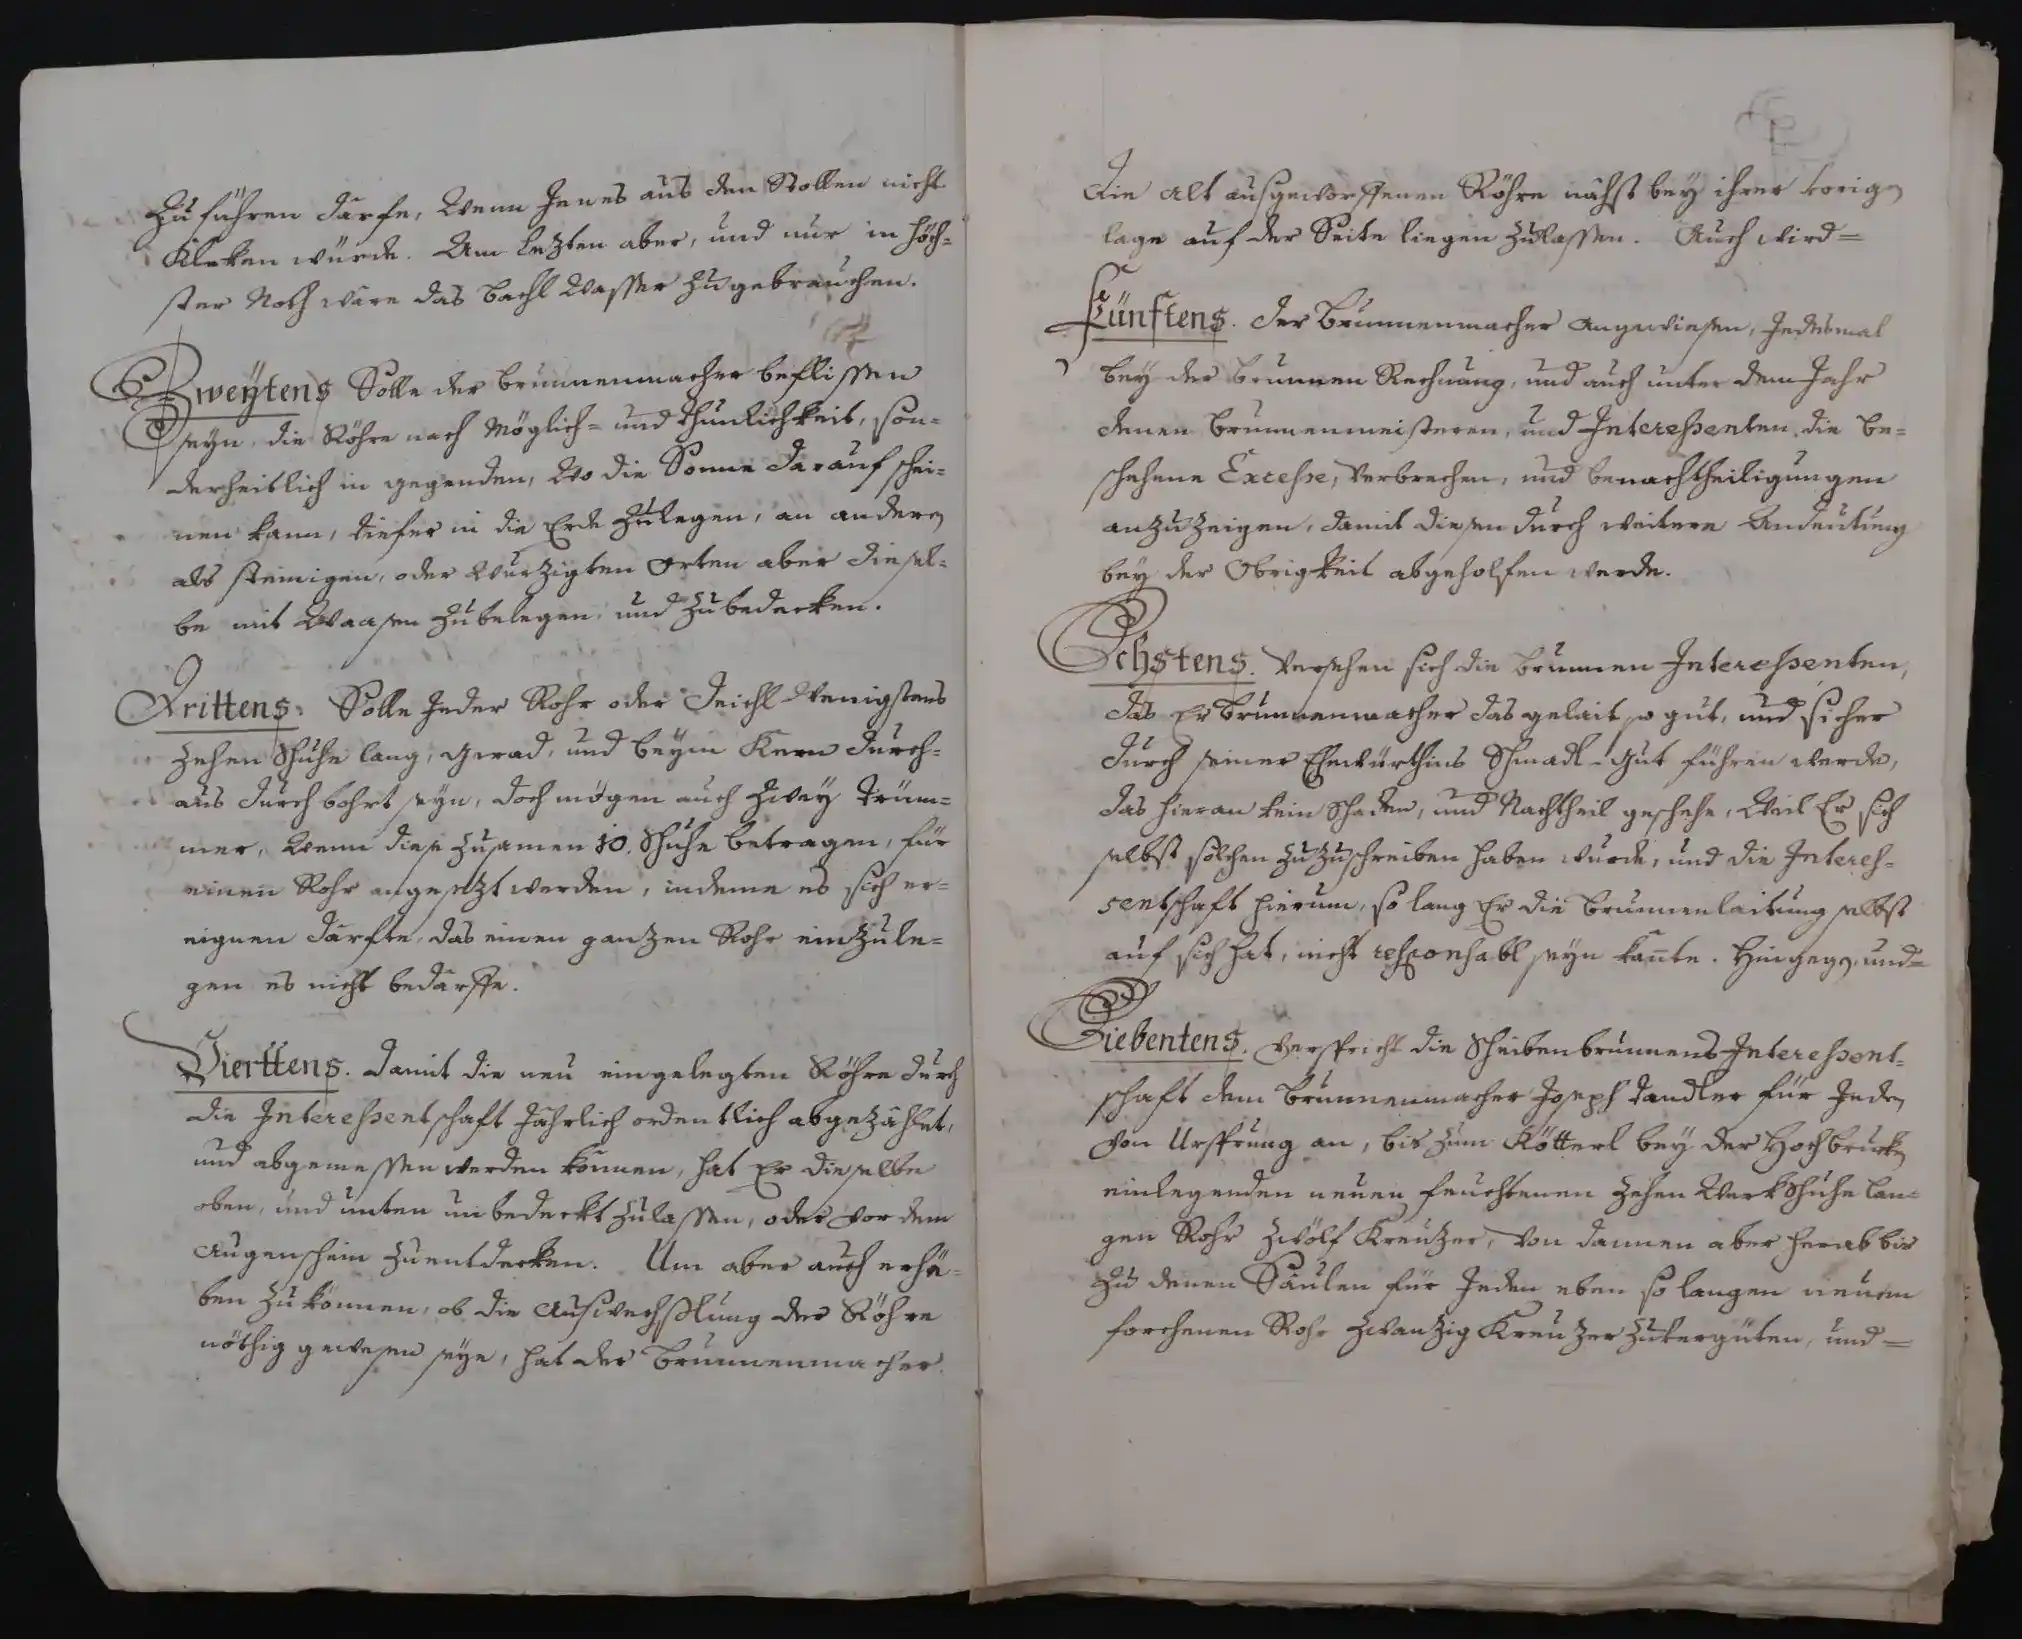 Zu führen därfe, Wenn Jenes aus den Stollen nicht
Kleken würde. Am lezten aber, und nur in höch=
ster Noth wäre das bachl Wasser zu gebrauchen.
Zweytens Solle der brunnenmacher beflissen
seyn, die Röhre nach Möglich= und thunlichkeit, son=
derheitlich in gegenden, Wo die Sonne darauf schei=
nen kann, tiefer in die Erde zulegen, an anderen
als steinigen, oder Wurzigten Orten aber diesel=
be mit Waasen zubelegen, und zubedecken.
Drittens. Solle Jeder Rohr oder Teichl Wenigstens
Zehen Schuhe lang, gerad, und beym Kern durch=
aus durchbohrt seyn, doch mögen auch zwey trüm=
mer, Wenn diese zusamen 10. Schuhe betragen, für
einen Rohr angesezt werden, indeme es sich er=
eignen därfte, das einen ganzen Rohr einzule=
gen es nicht bedärffe.
Vierttens. damit die neu eingelegten Röhre durch
die Interessentschaft Jährlich ordentlich abgezählet,
und abgemessen werden können, hat Er dieselbe
oben, und unten unbedeckt zulassen, oder vor dem
Augenschein zuentdecken. Um aber auch erhe=
ben zu können, ob die Auswechslung der Röhre
nöthig gewesen seye, hat der brunnenmacher
die alt ausgeworffenen Röhre nächst bey ihrer vorigen
lage auf der Seite liegen zulassen. Auch wird=
Fünftens. der brunnenmacher angewiesen, Jedesmal
bey der brunnen Rechnung, und auch unter dem Jahr
denen brunnenmeisteren, und Interessenten die be=
schehene Excesse, Verbrechen, und benachtheiligungen
anzuzeigen, damit diesen durch weitere Andeutung
bey der Obrigkeit abgeholfen werde.
Sechstens. Versehen sich die brunnen Interessenten,
das Er brunnenmacher das gelait so gut, und sicher
durch seiner Ehewürthins Schmadl=gut führen werde,
das hieran kein Schaden, und Nachtheil geschehe, Weil Er sich
selbst solchen zuzuschreiben haben wurde, und die Interes=
sentschaft hierum, so lang Er die brunnenlaitung selbst
auf sich hat, nicht responsabl seyn kante. Hingegen, und=
Siebentens. Verspricht die Scheibenbrunnens Interessent=
schaft dem brunnenmacher Joseph Tandler für Jeden
von Ursprung an, bis zum Kötterl bey der Hochbrucken
einlegenden neuen feuchtenen Zehen Werkschuhe lan=
gen Rohr zwölf Kreuzer, von dannen aber herab bis
Zu denen Säulen für Jeden eben so langen neuen
forchenen Rohr zwanzig Kreuzer zuvergüten, und=